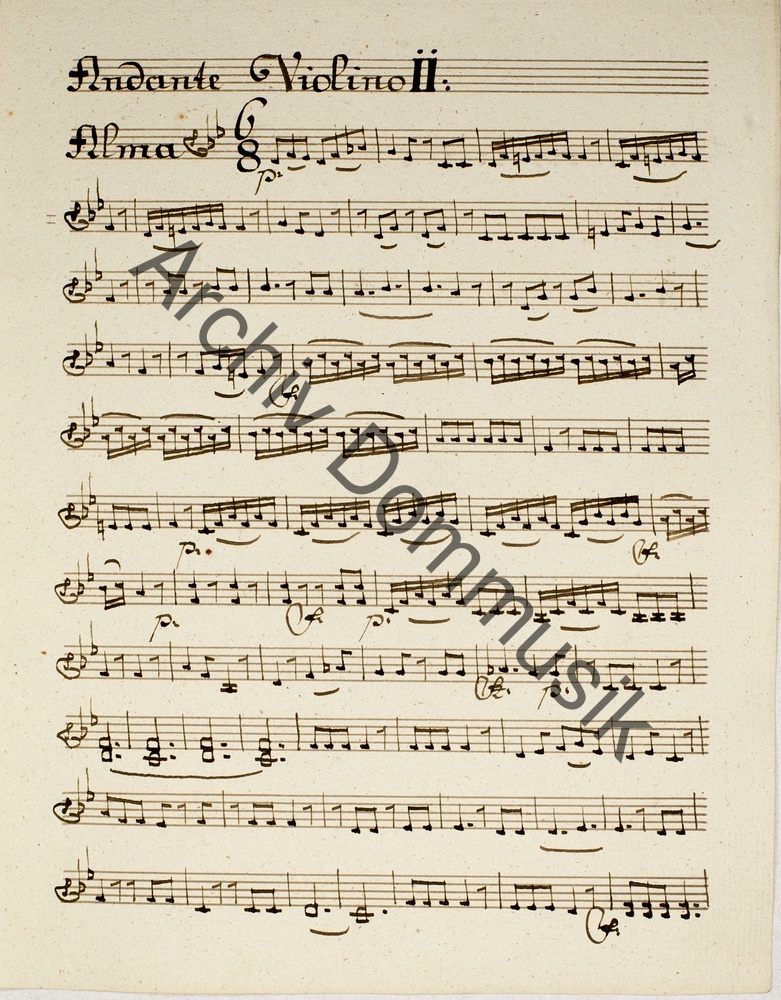 Andante Violino II:
Alma 6/8
p:
f:
p.
f.
p. f. p.
fz. p.
f.
Archiv Dommusik